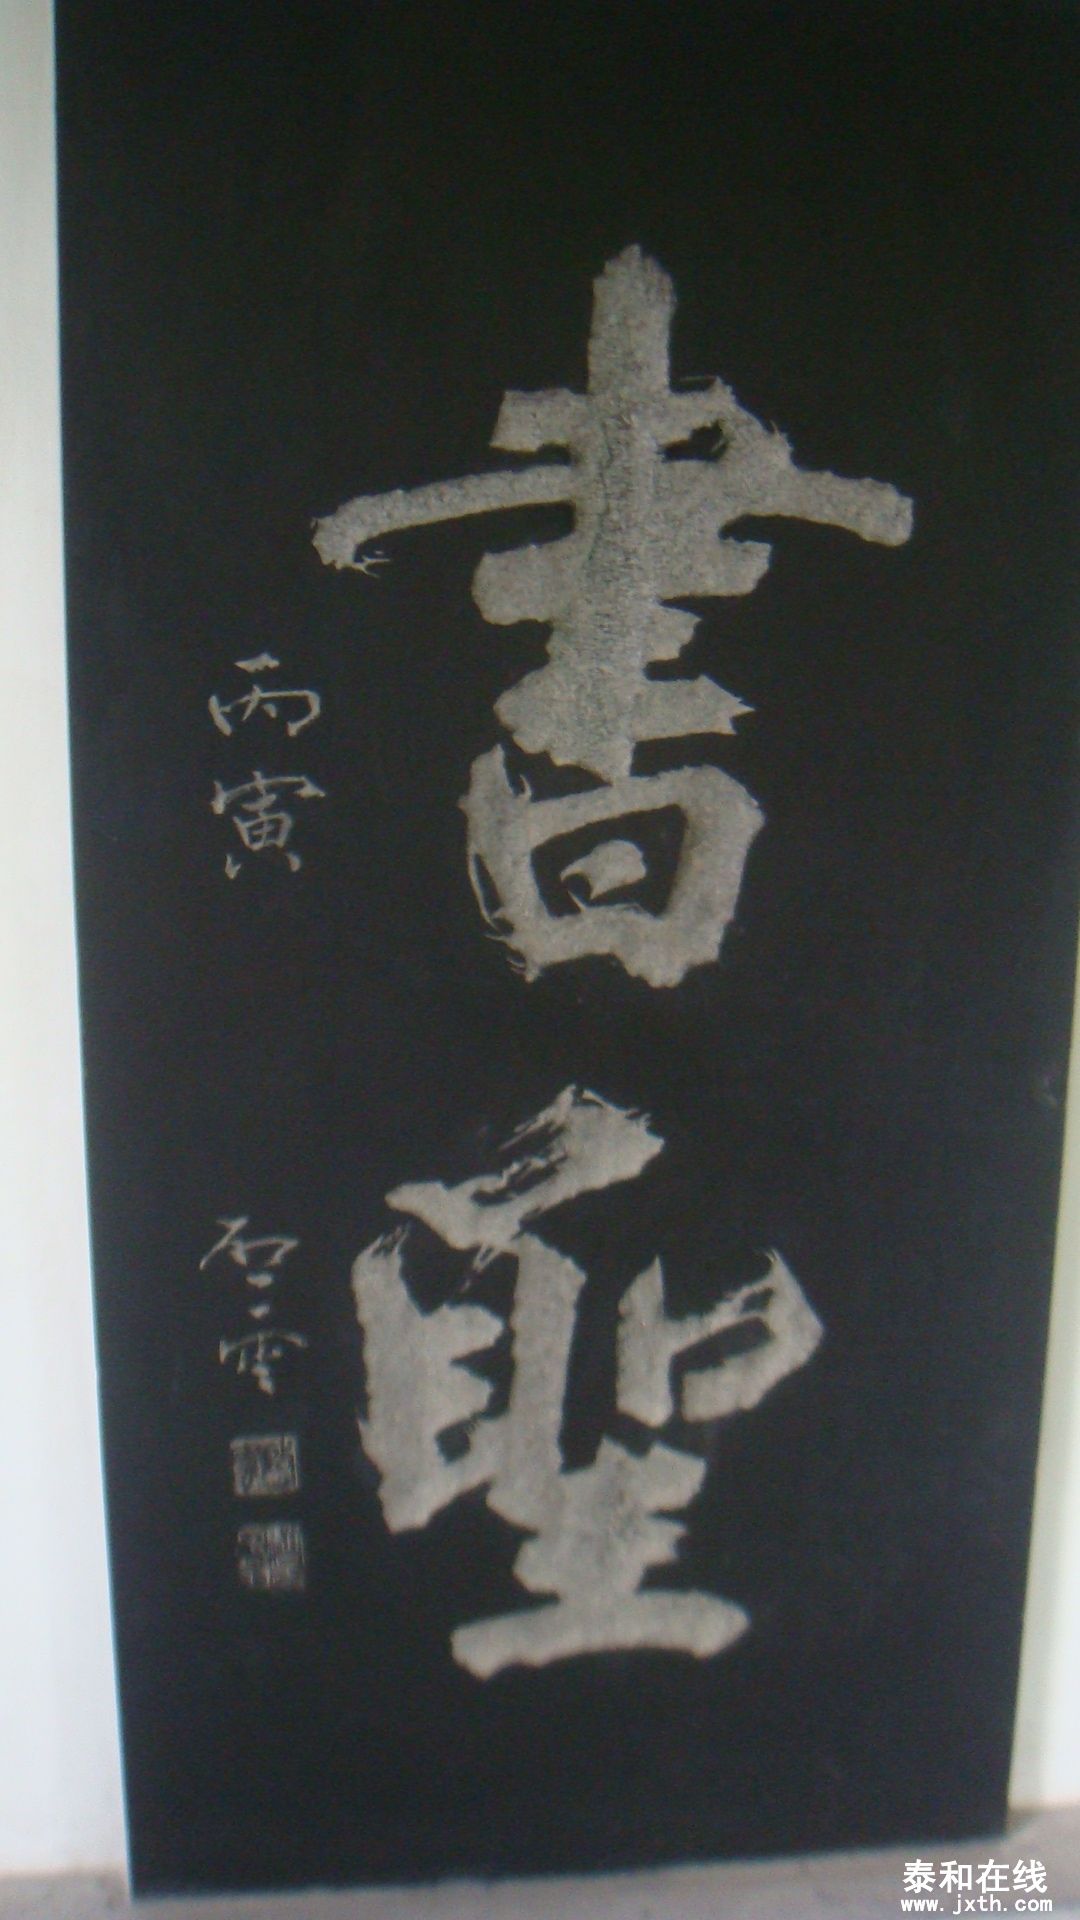 書聖
丙寅
泰和在线
www.jxth.com